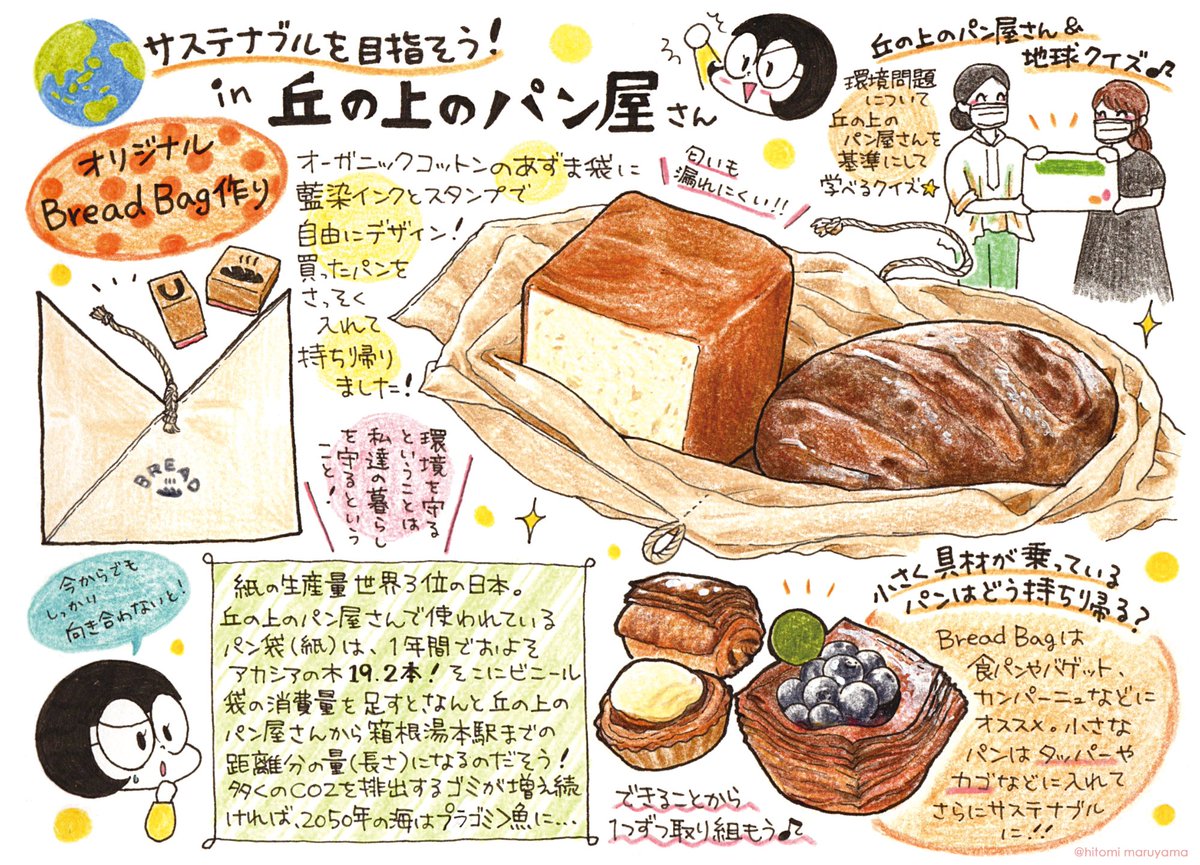 サステナブルを目指そう!
in 丘の上のパン屋さん
丘の上のパン屋さん&
地球クイズ♪
環境問題
について
丘の上の
パン屋さんを
基準にして
学べるクイズ☆
オリジナル
Bread Bag作り
オーガニックコットンのあずま袋に
藍染インクとスタンプで
自由にデザイン!
買ったパンを
さっそく
入れて
持ち帰り
ました!
匂いも
漏れにくい!!
BREAD
環境を守る
ということは
私達の暮らし
を守るという
こと!
今からでも
しっかり
向き合わないと!
紙の生産量世界3位の日本。
丘の上のパン屋さんで使われている
パン袋(紙)は、1年間でおよそ
アカシアの木19.2本!そこにビニール
袋の消費量を足すと、なんと丘の上の
パン屋さんから箱根湯本駅までの
距離分の量(長さ)になるのだそう!
多くのCO2を排出するゴミが増え続
ければ、2050年の海はプラゴミ>魚に...
小さく具材が乗っている
パンはどう持ち帰る?
Bread Bagは
食パンやバゲット、
カンパーニュなどに
オススメ。小さな
パンはタッパーや
カゴなどに入れて
さらにサステナブル
に!!
できることから
1つずつ取り組もう♪
@hitomi maruyama